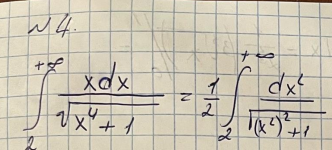 № 4.
∫₂^{+∞} xdx / √(x⁴ + 1) = 1/2 ∫₂^{+∞} dx² / √((x²)² + 1)